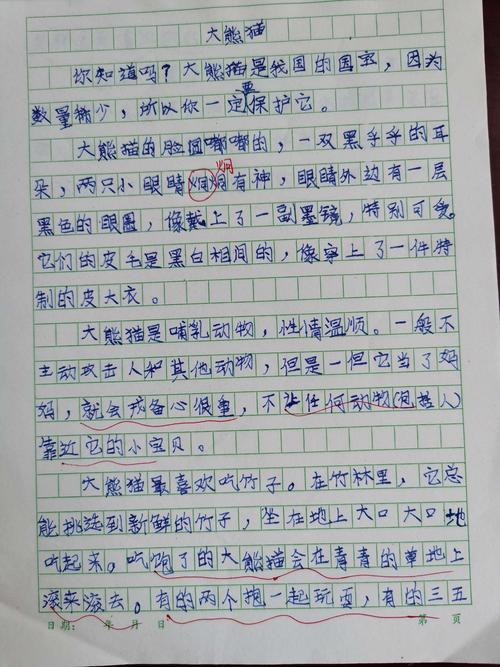 大熊猫
你知道吗?大熊猫是我国的国宝,因为
要
数量稀少,所以你一定保护它。
大熊猫的脸圆嘟嘟的,一双黑乎乎的耳
炯
朵,两只小眼睛炯炯有神,眼睛外边有一层
黑色的眼圈,像戴上了一副墨镜,特别可爱。
它们的皮毛是黑白相间的,像穿上了一件特
制的皮大衣。
大熊猫是哺乳动物,性情温顺。一般不
主动攻击人和其他动物,但是一但它当了妈
妈,就会戒备心很重,不让任何动物(包括人)
靠近它的小宝贝。
大熊猫最喜欢吃竹子。在竹林里,它总
能挑选到新鲜的竹子,坐在地上大口大口地
吃起来。吃饱了的大熊猫会在青青的草地上
滚来滚去。有的两个抱一起玩耍,有的三五
日期: 年 月 日 第 页